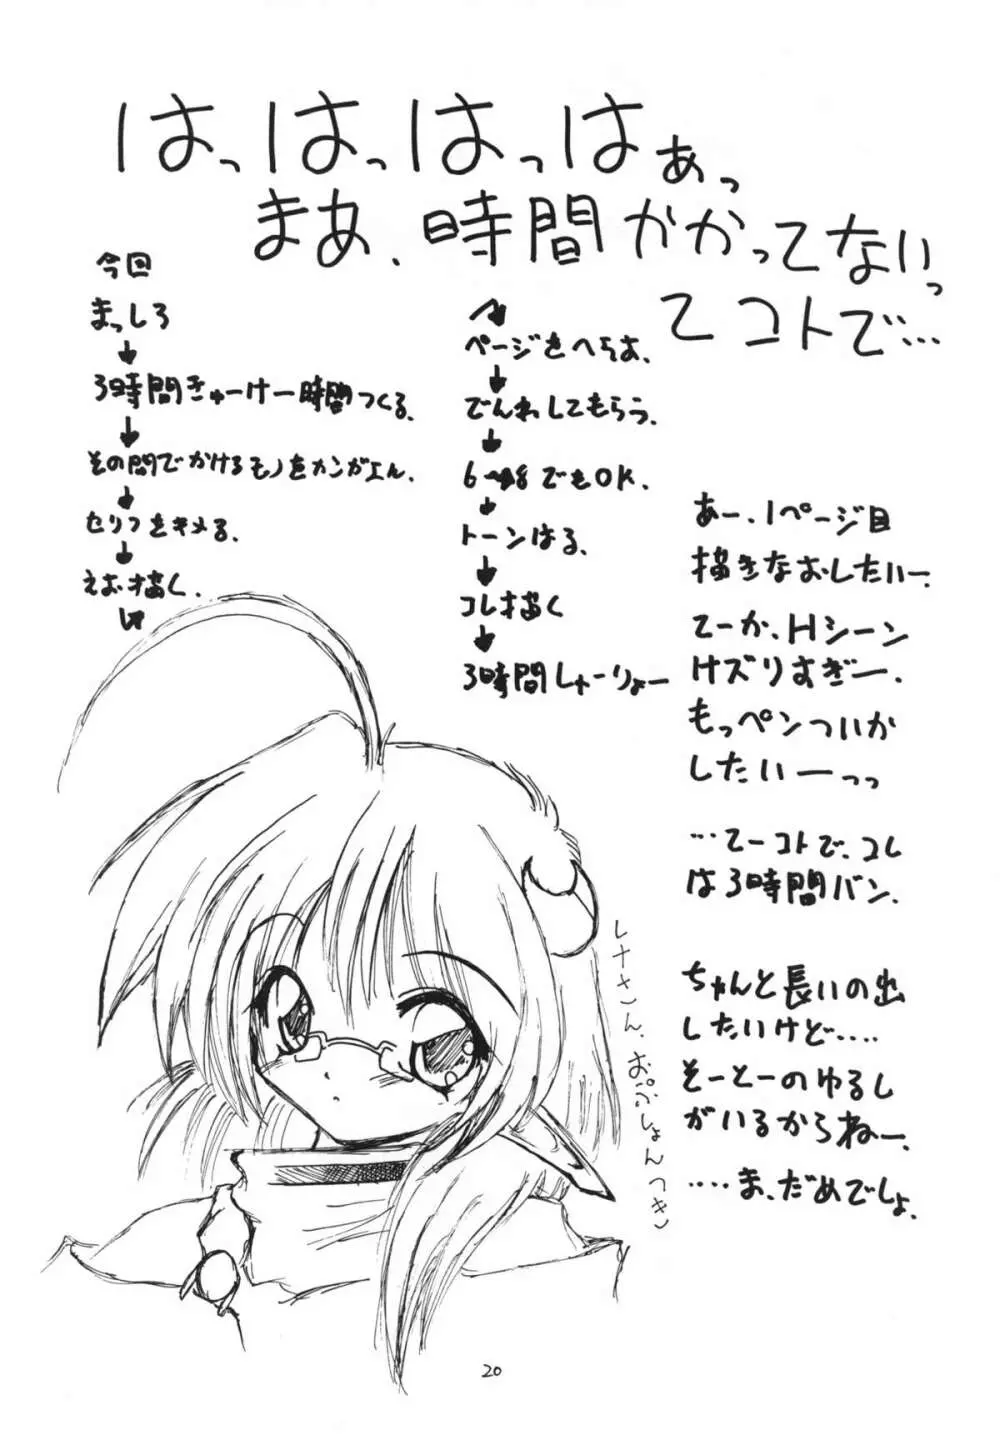 はっはっはっはぁっ
まあ、時間かかってないっ
てコトで…
今回
まっしろ
↓
3時間きゅーけー時間つくる.
↓
その間でかけるモノをカンガエん.
↓
セリフをキメる.
↓
えお描く.
↓
ページをへらす.
↓
でんわしてもらう.
↓
6→8でもOK.
↓
トーンはる.
↓
コレ描く
↓
3時間しゅーりょー
あー、1ページ目
描きなおしたいー.
てーか、Hシーン
けズりすぎー.
もっペンついか
したいーっっ
…てーコトで、コレ
は3時間バン.
ちゃんと長いの出
したいけど….
そーとーのゆるし
がいるからねー.
….ま、だめでしょ.
レナさん、おぷしょんつき
20